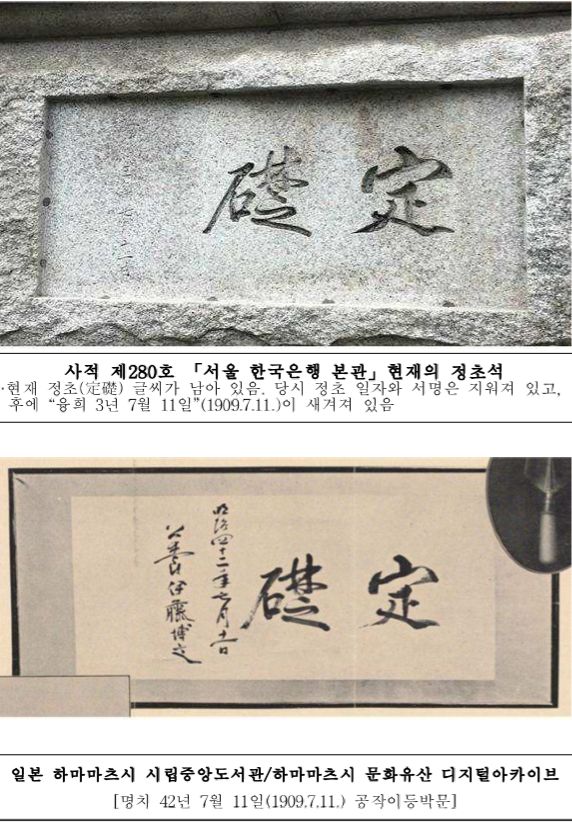 定礎
사적 제280호 「서울 한국은행 본관」현재의 정초석
·현재 정초(定礎) 글씨가 남아 있음. 당시 정초 일자와 서명은 지워져 있고,
후에 “융희 3년 7월 11일”(1909.7.11.)이 새겨져 있음
定礎
明治四十二年七月十一日
公爵伊藤博文
일본 하마마츠시 시립중앙도서관/하마마츠시 문화유산 디지털아카이브
[명치 42년 7월 11일(1909.7.11.) 공작이등박문]